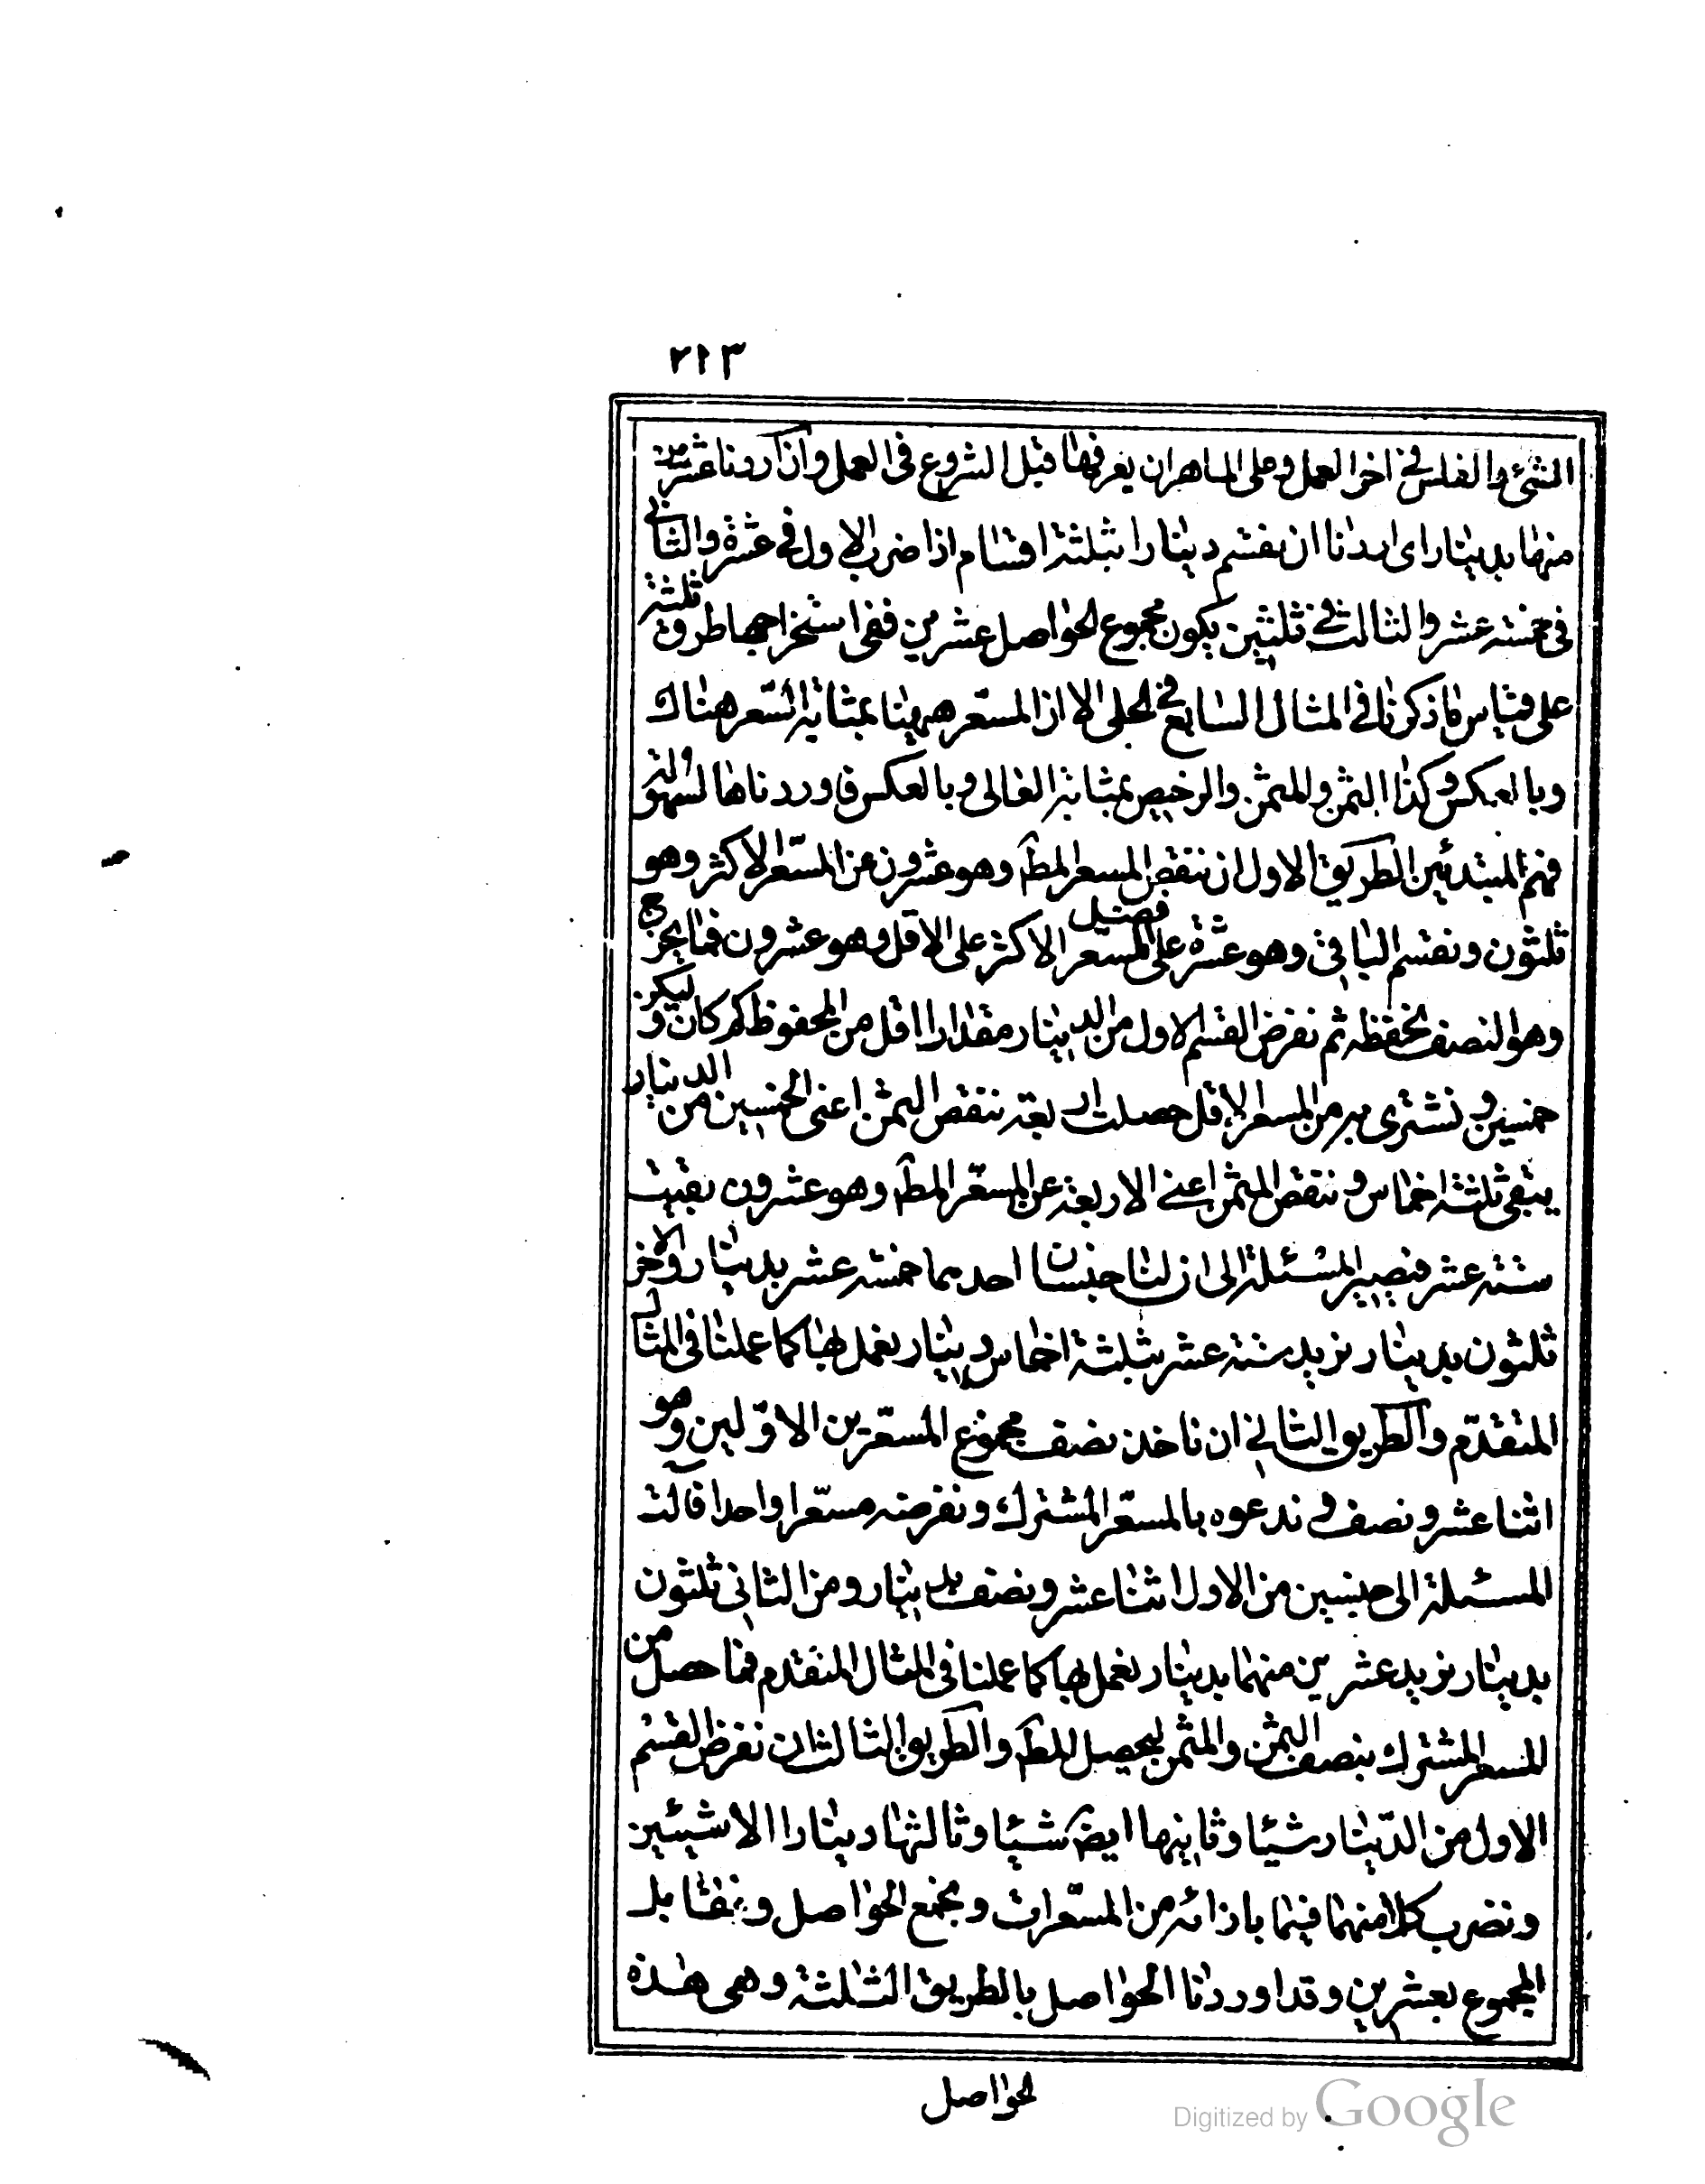 ٢١٣
الشئ والفلس فى اخر العمل وعلى الماهر ان يعرفها قبل الشروع فى العمل واذا اردنا عشرين
منها بدينار اى اردنا ان نقسم دينارا بثلثة اقسام اذا ضرب الاول فى عشرة والثانى
فى خمسة عشر والثالث فى ثلثين يكون مجموع الحواصل عشرين ففى استخراجها طرق ثلثة
على قياس ما ذكرنا فى المثال السابع فى الحلى الا ان المسعر ههنا بمثابة السعر هناك
وبالعكس وكذا الثمن والمثمن والرخيص بمثابة الغالى وبالعكس فاوردناها لسهولة
فهم المبتدئين الطريق الاول ان ننقص المسعر المط وهو عشرون عن المسعر الاكثر وهو
ثلثون ونقسم الباقى وهو عشرة على فضل المسعر الاكثر على الاقل وهو عشرون فما يخرج
وهو النصف نحفظه ثم نفرض القسم الاول من الدينار مقدارا اقل من المحفوظ كم كان وليكن
خمسين ونشترى به من المسعر الاقل حصلت اربعة ننقص الثمن اعنى الخمسين من الدينار
يبقى ثلثة اخماس وننقص المثمن اعنى الاربعة عن المسعر المط وهو عشرون بقيت
ستة عشر فيصير المسئلة الى ان لنا جنسان احديهما خمسة عشر بدينار والاخر
ثلثون بدينار نريد ستة عشر بثلثة اخماس دينار نعمل بها كما عملنا فى المثال
المتقدم والطريق الثانى ان ناخذ نصف مجموع المسعرين الاولين وهو
اثنا عشر ونصف وندعوه بالمسعر المشترك ونفرضه مسعرا واحدا فالت
المسئلة الى جنسين من الاول اثنا عشر ونصف بدينار ومن الثانى ثلثون
بدينار نريد عشرين منهما بدينار نعمل بها كما عملنا فى المثال المتقدم فما حصل من
المسعر المشترك ننصف الثمن والمثمن ليحصل المط والطريق الثالث ان نفرض القسم
الاول من الدينار شيئا وثانيها ايض شيئا وثالثها دينارا الا شيئين
ونضرب كلا منهما فيما بازائه من المسعرات ونجمع الحواصل ونقابل
المجموع بعشرين وقد اوردنا الحواصل بالطريق الثلثة وهى هذه
الحواصل
Digitized by Google